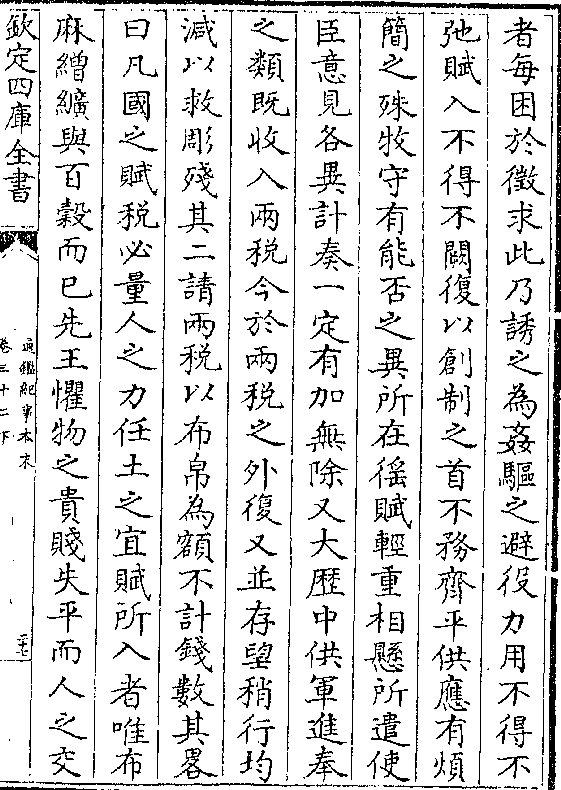 者每困於徵求此乃誘之為姦驅之避役力用不得不
弛賦入不得不闕復以創制之首不務齊平供應有煩
簡之殊牧守有能否之異所在徭賦輕重相懸所遣使
臣意見各異計奏一定有加無除又大歷中供軍進奉
之類既收入兩税今於兩税之外復又並存望稍行均
減以救彫殘其二請兩税以布帛為額不計錢數其畧
曰凡國之賦税必量人之力任土之宜賦所入者唯布
麻繒纊與百穀而已先王懼物之貴賤失平而人之交
欽定四庫全書
通鑑紀事本末
卷三十二下
二七